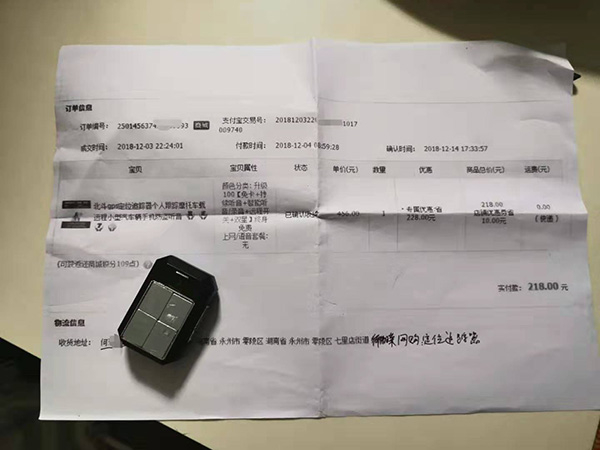 订单信息
订单编号: 2501456374 593 商城 支付宝交易号: 20181203220 1017
009740
成交时间: 2018-12-03 22:24:01 付款时间: 2018-12-04 08:59:28 确认时间: 2018-12-14 17:33:57
宝贝 宝贝属性 状态 单价(元) 数量 优惠 商品总价(元) 运费(元)
颜色分类: 升级
北斗gps定位追踪器个人跟踪摩托车载
远程小型汽车辆手机
免费
上网/语音套餐:
无
已确认收货 456.00 1 ·专属优惠 省
228.00元
218.00
店铺优惠券省
10.00元
0.00
(快递)
(可获赠送商城积分109点)
实付款: 218.00 元
物流信息
收货地址: 何 南省 永州市 零陵区 湖南省 永州市 零陵区 七里店街道 网购定位追踪器